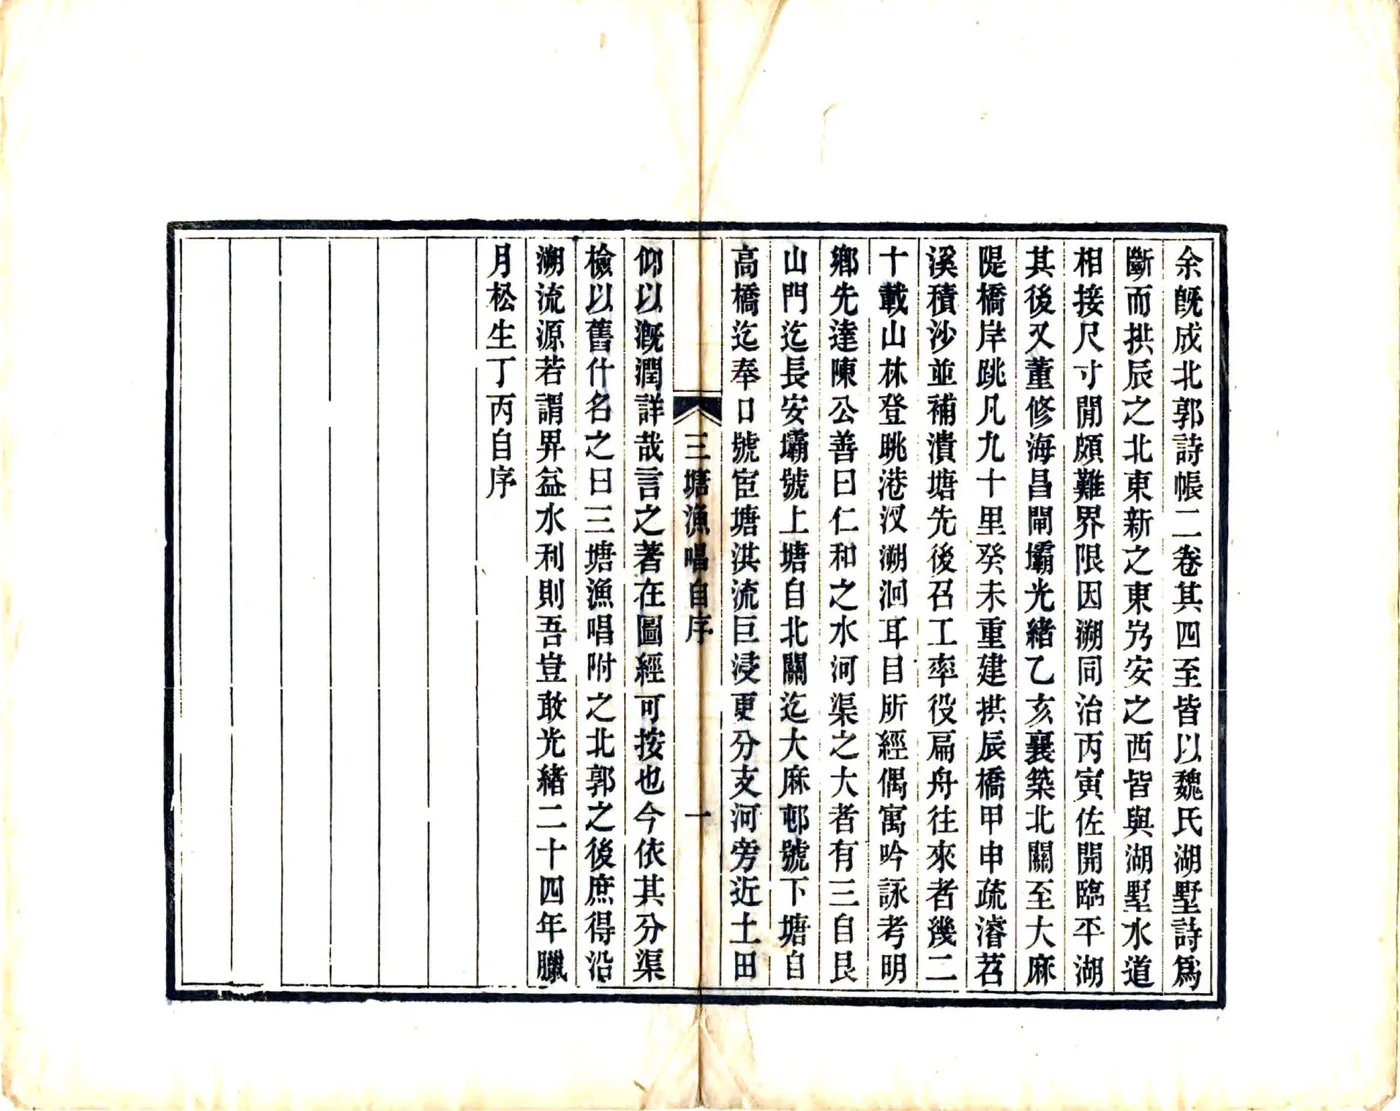 余旣成北郭詩帳二卷其四至皆以魏氏湖墅詩爲
斷而拱辰之北東新之東㫄安之西皆與湖墅水道
相接尺寸閒頗難界限因溯同治丙寅佐開臨平湖
其後又董修海昌閘壩光緒乙亥襄築北關至大麻
隄橋岸跳凡九十里癸未重建拱辰橋甲申疏濬苕
溪積沙並補潰塘先後召工率役扁舟往來者幾二
十載山林登眺港汊溯洄耳目所經偶寓吟詠考明
鄉先達陳公善曰仁和之水河渠之大者有三自艮
山門迄長安壩號上塘自北關迄大麻邨號下塘自
高橋迄奉口號宦塘洪流巨浸更分支河旁近土田
三塘漁唱自序
一
仰以漑潤詳哉言之著在圖經可按也今依其分渠
檢以舊什名之曰三塘漁唱附之北郭之後庶得沿
溯流源若謂畀益水利則吾豈敢光緒二十四年臘
月松生丁丙自序